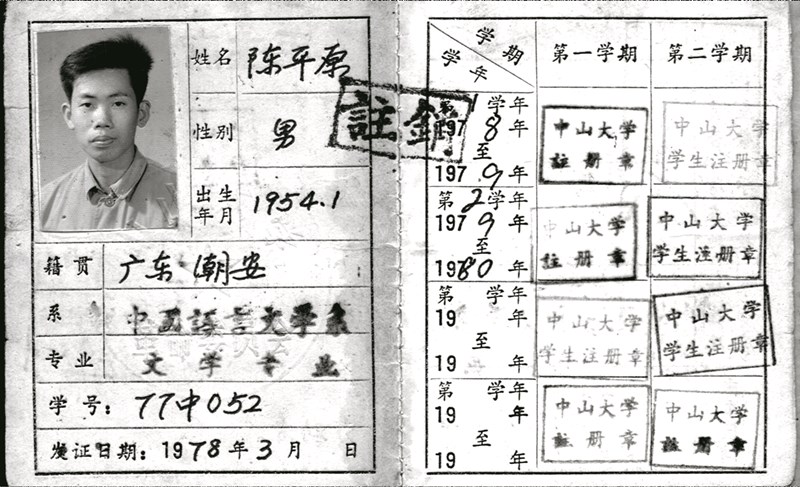 姓名 陈平原
性别 男
出生年月 1954.1
籍贯 广东 潮安
系 中国语言文学系
专业 文学专业
学号: 77中052
发证日期: 1978年3月 日
註銷
学期
学年
第一学期 第二学期
第1学年
1978年
至
1979年
中山大学
註册章
中山大学
学生注册章
第2学年
1979年
至
1980年
中山大学
註册章
中山大学
学生注册章
第 学年
19 年
至
19 年
中山大学
学生注册章
中山大学
学生注册章
第 学年
19 年
至
19 年
中山大学
註册章
中山大学
註册章